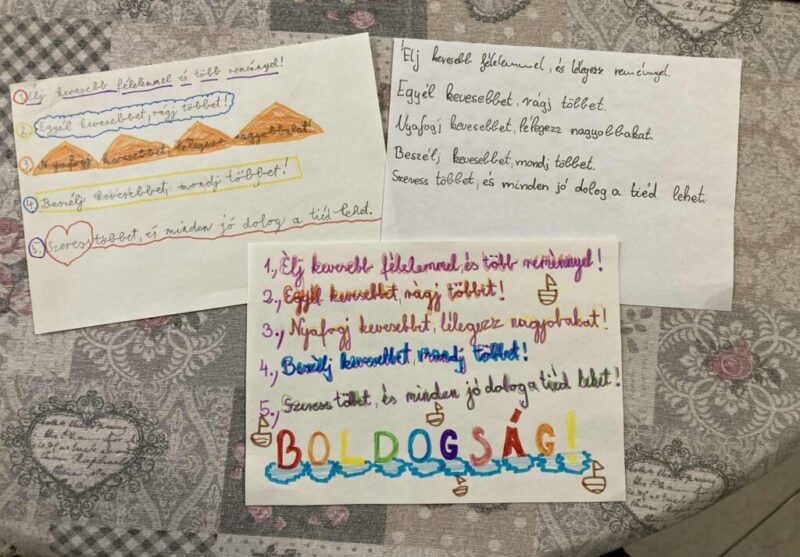 1. Élj kevesebb félelemmel és több reménnyel!
2. Egyél kevesebbet, rágj többet!
3. Nyafogj kevesebbet, lélegezz nagyobbakat!
4. Beszélj kevesebbet, mondj többet!
5. Szeress többet, és minden jó dolog a tiéd lehet.
Élj kevesebb félelemmel, és lélegezz reménnyel.
Egyél kevesebbet, rágj többet.
Nyafogj kevesebbet, lélegezz nagyobbakat.
Beszélj kevesebbet, mondj többet.
Szeress többet, és minden jó dolog a tiéd lehet.
1., Élj kevesebb félelemmel, és több reménnyel!
2., Egyél kevesebbet, rágj többet!
3., Nyafogj kevesebbet, lélegezz nagyobakat!
4., Beszélj kevesebbet, mondj többet!
5., Szeress többet, és minden jó dolog a tiéd lehet!
BOLDOGSÁG!